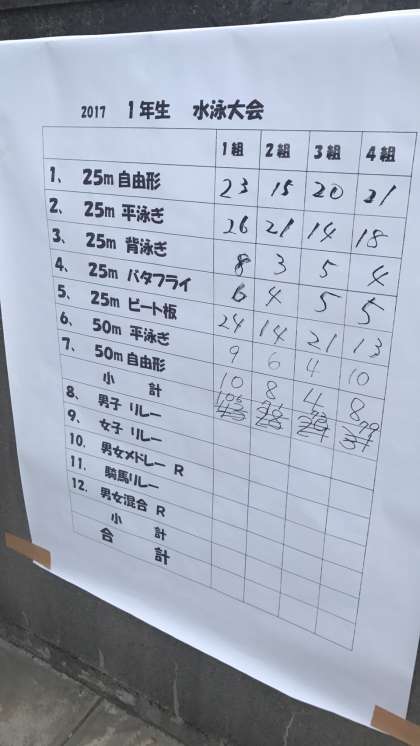 2017 1年生 水泳大会
1組 2組 3組 4組
1、 25m 自由形 23 15 20 21
2、 25m 平泳ぎ 26 21 14 18
3、 25m 背泳ぎ 8 3 5 4
4、 25m バタフライ 6 4 5 5
5、 25m ビート板 24 14 21 13
6、 50m 平泳ぎ 9 6 4 10
7、 50m 自由形 10 8 4 8
小 計 106 73 79
8、 男子 リレー
9、 女子 リレー
10、 男女メドレー R
11、 騎馬リレー
12、 男女混合 R
小 計
合 計